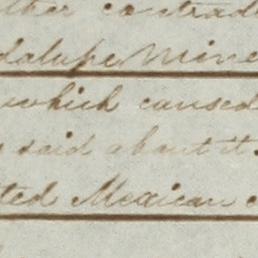 ther contrad
dalupe Mine
which caused
said about it.
ted Mexican c